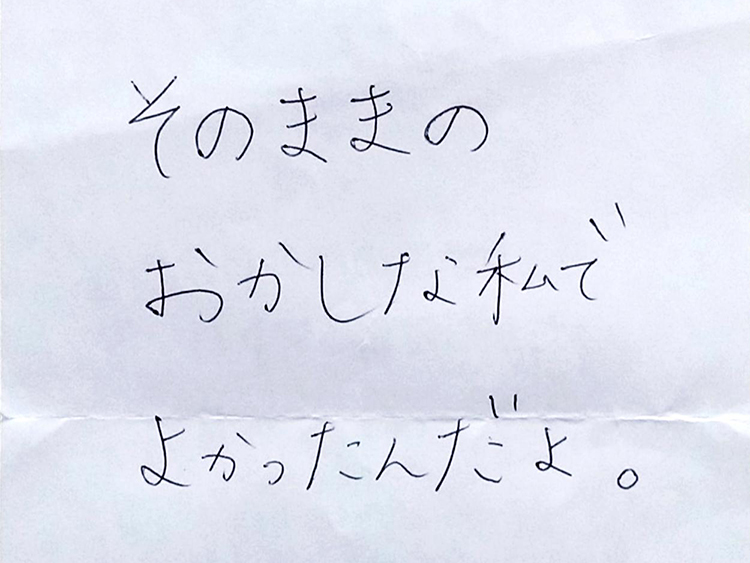 そのままの
おかしな私で
よかったんだよ。